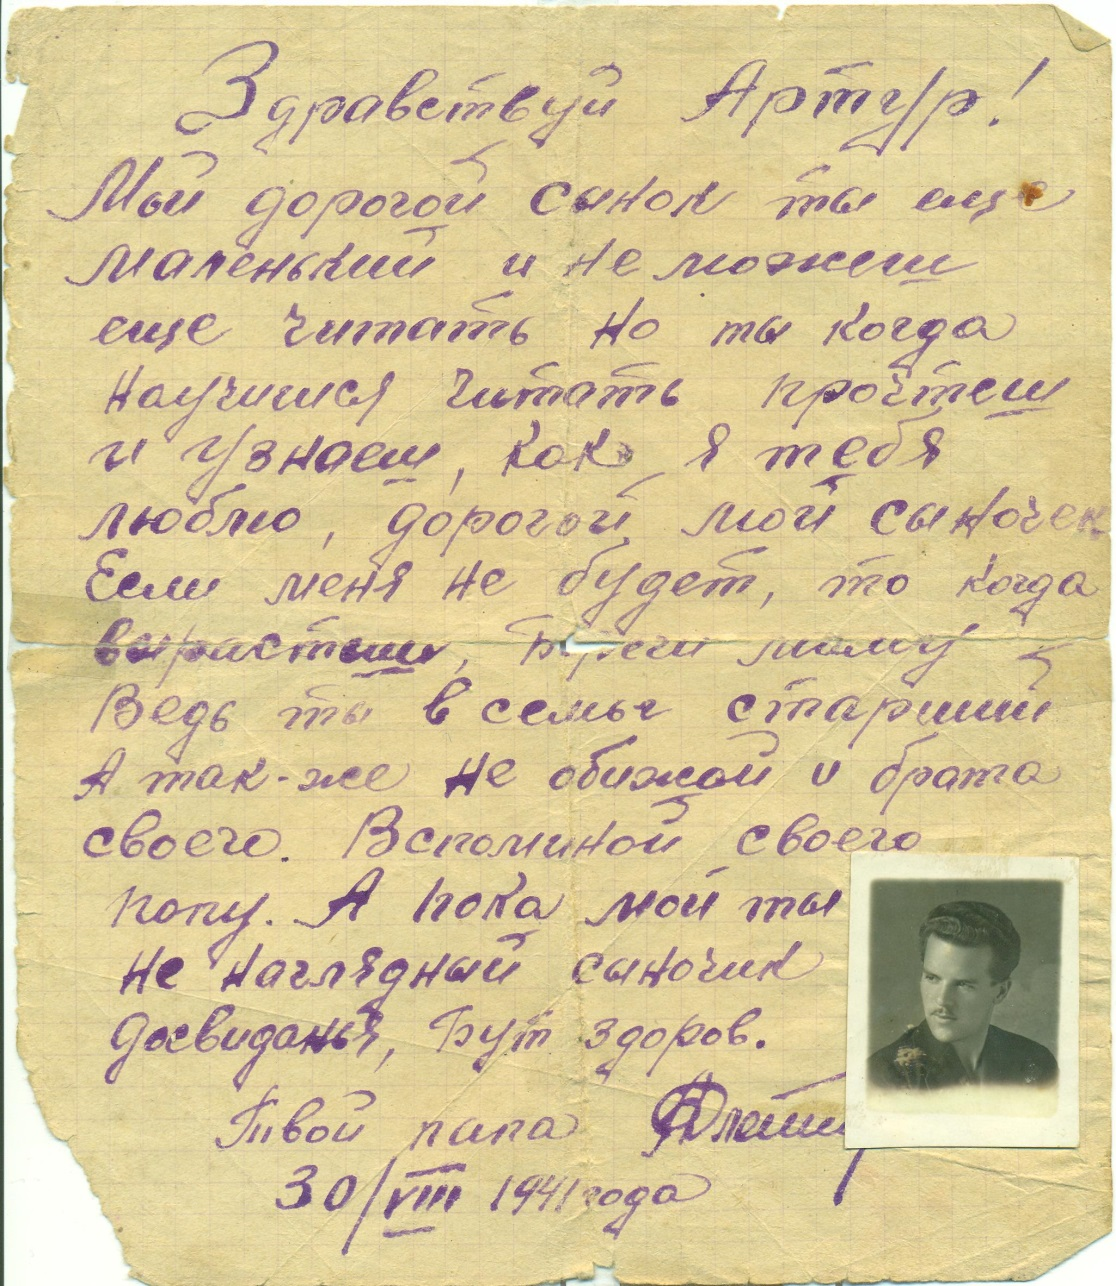 Здравствуй Артур!
Мой дорогой сынок ты еще
маленький и не можеш
еще читать но ты когда
научишся читать прочтеш
и узнаеш, как я тебя
люблю, дорогой мой сыночек
Если меня не будет, то когда
вырастиш, Береги маму
Ведь ты в семье старший
А так-же не обижай и брата
своего. Вспоминой своего
папу. А пока мой ты
не наглядный сыночик
досвиданья, Бут здоров.
Твой папа
30/VIII 1941 года